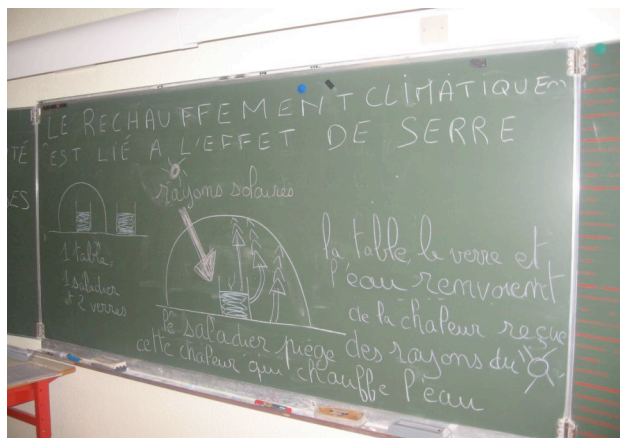 LE RECHAUFFEMENT CLIMATIQUE
EST LIÉ A L'EFFET DE SERRE
TÉ
ES
rayons solaires
1 table,
1 saladier
et 2 verres
la table, le verre et
l'eau renvoient
de la chaleur reçue
des rayons du
le saladier piège
cette chaleur qui chauffe l'eau